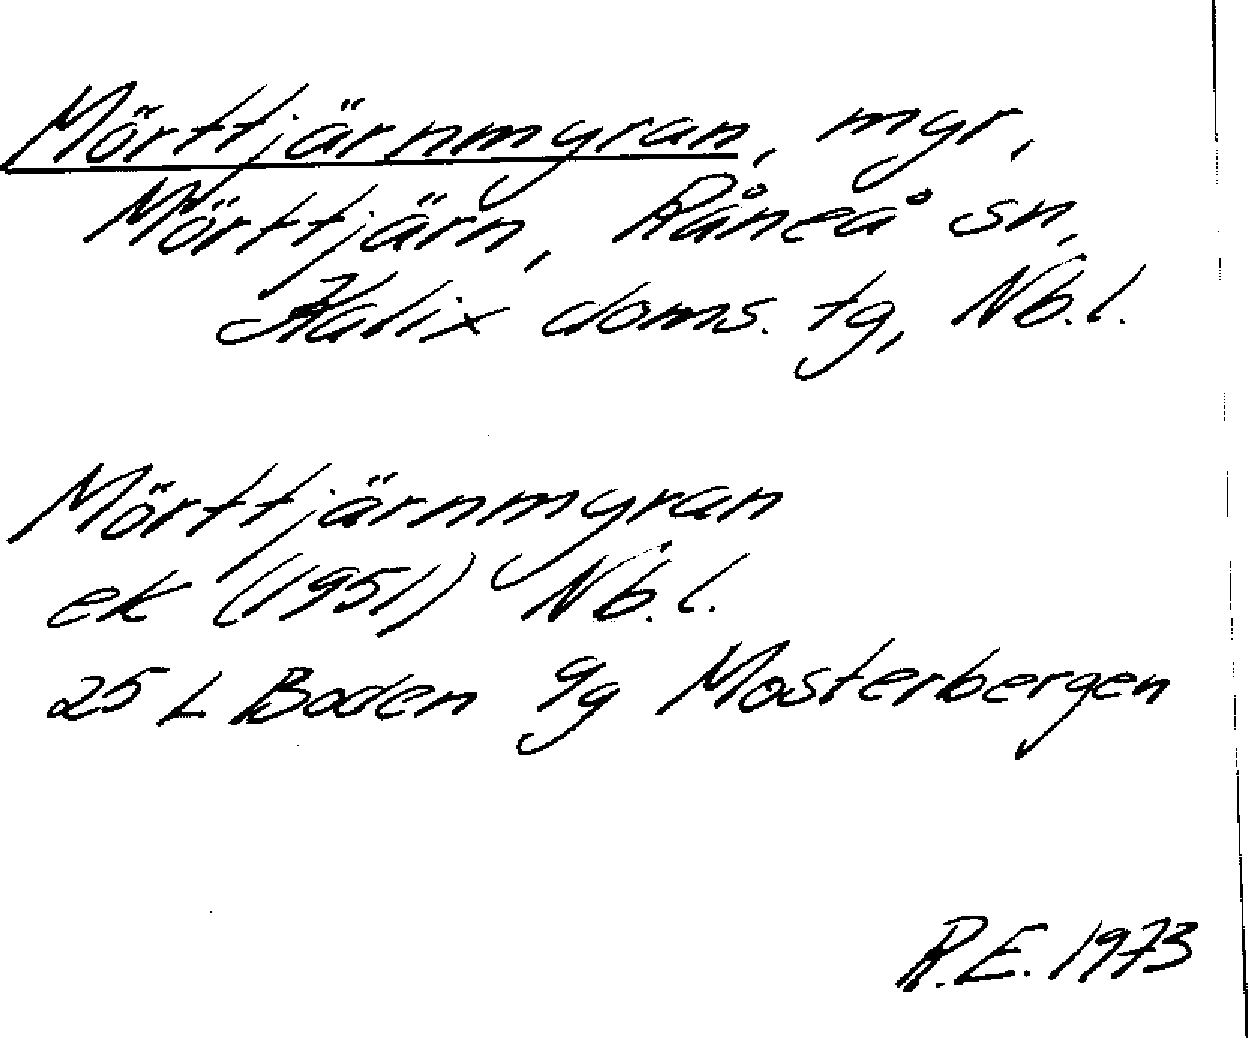 Mörttjärnmyran, mgr,
Mörttjärn, Råneå sn,
Kalix doms. tg, Nb.l.
Mörttjärnmyran
ek (1951) Nb.l.
25 L Boden 9g Mosterbergen
R.E. 1973